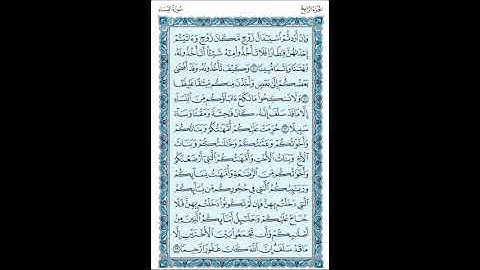 الجزء الرابع سورة النساء
وَإِنْ أَرَدتُّمُ ٱسْتِبْدَالَ زَوْجٍ مَّكَانَ زَوْجٍ وَءَاتَيْتُمْ
إِحْدَىٰهُنَّ قِنطَارًا فَلَا تَأْخُذُوا۟ مِنْهُ شَيْـًٔا أَتَأْخُذُونَهُۥ
بُهْتَٰنًا وَإِثْمًا مُّبِينًا ۝٢٠ وَكَيْفَ تَأْخُذُونَهُۥ وَقَدْ أَفْضَىٰ
بَعْضُكُمْ إِلَىٰ بَعْضٍ وَأَخَذْنَ مِنكُم مِّيثَٰقًا غَلِيظًا
۝٢١ وَلَا تَنكِحُوا۟ مَا نَكَحَ ءَابَآؤُكُم مِّنَ ٱلنِّسَآءِ
إِلَّا مَا قَدْ سَلَفَ إِنَّهُۥ كَانَ فَٰحِشَةً وَمَقْتًا وَسَآءَ
سَبِيلًا ۝٢٢ حُرِّمَتْ عَلَيْكُمْ أُمَّهَٰتُكُمْ وَبَنَاتُكُمْ
وَأَخَوَٰتُكُمْ وَعَمَّٰتُكُمْ وَخَٰلَٰتُكُمْ وَبَنَاتُ
ٱلْأَخِ وَبَنَاتُ ٱلْأُخْتِ وَأُمَّهَٰتُكُمُ ٱلَّٰتِىٓ أَرْضَعْنَكُمْ
وَأَخَوَٰتُكُم مِّنَ ٱلرَّضَٰعَةِ وَأُمَّهَٰتُ نِسَآئِكُمْ
وَرَبَٰٓئِبُكُمُ ٱلَّٰتِى فِى حُجُورِكُم مِّن نِّسَآئِكُمُ
ٱلَّٰتِى دَخَلْتُم بِهِنَّ فَإِن لَّمْ تَكُونُوا۟ دَخَلْتُم بِهِنَّ فَلَا
جُنَاحَ عَلَيْكُمْ وَحَلَٰٓئِلُ أَبْنَآئِكُمُ ٱلَّذِينَ مِنْ
أَصْلَٰبِكُمْ وَأَن تَجْمَعُوا۟ بَيْنَ ٱلْأُخْتَيْنِ إِلَّا
مَا قَدْ سَلَفَ إِنَّ ٱللَّهَ كَانَ غَفُورًا رَّحِيمًا ۝٢٣